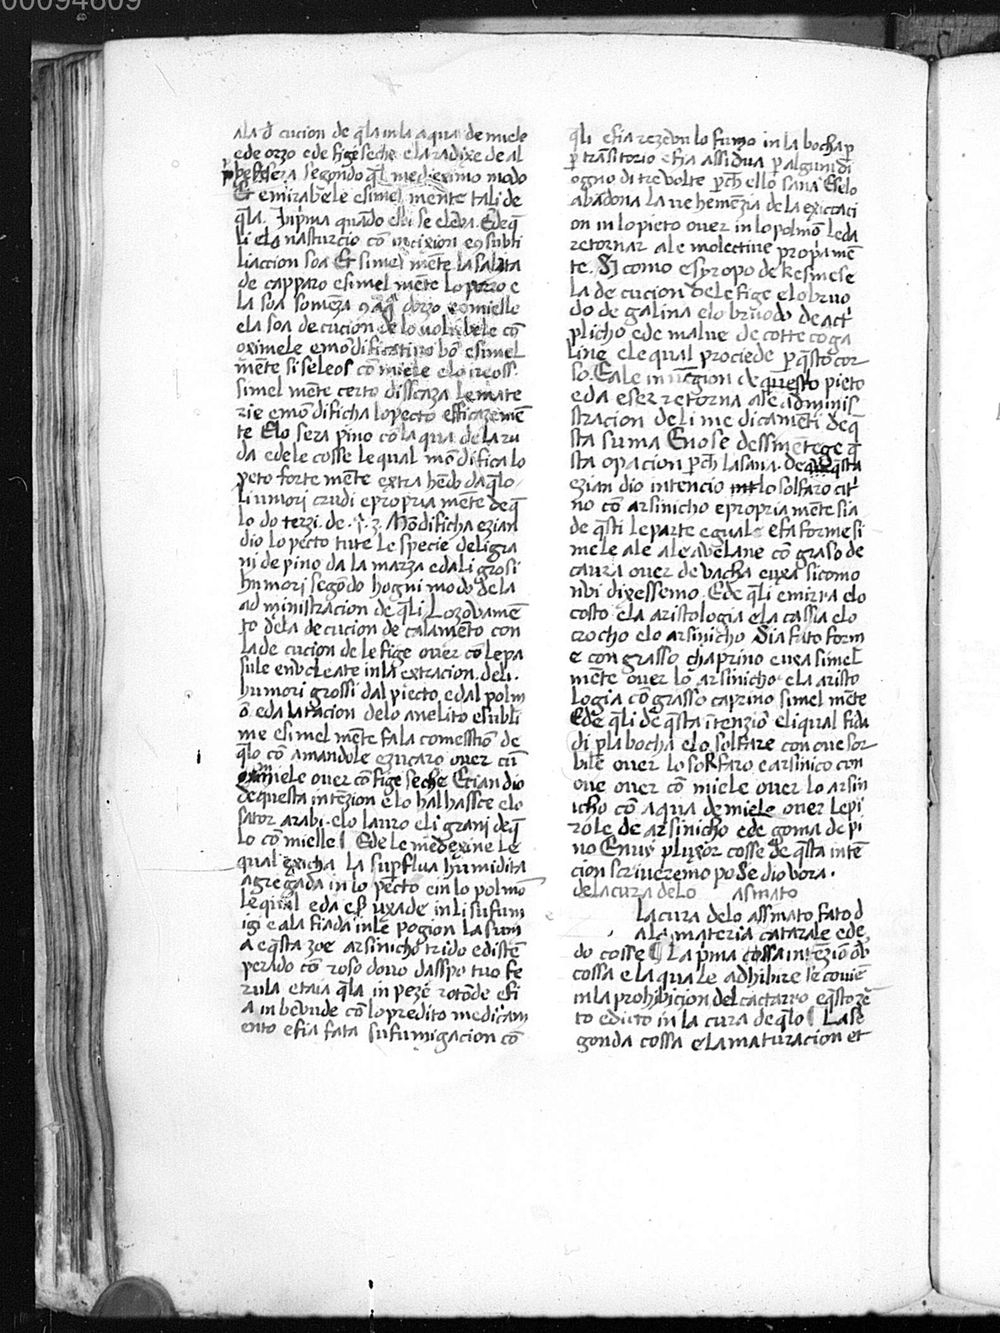 00094609
ala d̄ cucion de q̄la in la aqua de miele
e de orzo e de fige seche e la radixe de al
segondo q̄l medeximo modo
Et e mirabele e simel mente tali de
q̄la. In p̄ma quādo elli se eleva. E de q̄
li e lo nasturcio cō incixion e subti
liaccion soa Et simel mēte la salata
de capparo e simel mēte lo porro e
la soa somēza dorzo e o mielle
e la soa de cucion de lo volubele cō
oximele e mōdificativo bō e simel
mēte si seleos cō miele e lo ireos.
simel mēte certo dissicaza le mate
rie e mōdificha lo pecto efficazemē
te Elo sera pino cō la qua de la ru
da e de le cosse le qual mōdifica lo
peto forte mēte extrahēdo da q̄lo
li umori crudi e propria mēte de q̄
lo do terzi. de. Mōdificha ezian
dio lo pecto tute le specie de li gra
ni de pino da la marza e da li grosi
humori segōdo hogni modo de la
administracion de q̄li Lozovamē
to de la decucion de calamēto con
la de cucion de le fige over cō le pa
sule enucleate in la extracion. de li.
humori grossi dal piecto e dal polm
ō. e da latacion de lo anelito e subli
me e simel mēte fa la comesstiō de
q̄lo cō amandole e zucaro over cū
oximiele over cō fige seche Etiandio
de questa intēzion e lo halhassce e lo
sator arabi. e lo lauro e li grani de q̄
lo cō mielle E de le medexine le
qual exicha la sup̄flua humidita
agregada in lo pecto e in lo polmō
le qual e da e ss̄ uxade in li sufum
igi e ala fiada in le pogion la sum
a e q̄sta zoe arsinicho trido e distē
perado cō roso dovo dasspo tuo fe
rula e taia q̄la in peze rotōde e fi
a in bevude cō lo predito medicam
ento e fia fata sufumigacion cō
q̄li e fia rezevu lo fumo in la bocha p̄
p̄ transitorio e fia assidua p̄ alguni di
ogno di tre volte p̄ch ello sana E se lo
abādona la vehemēzia de la exiccaci
on in lo pieto over in lo polmō le da
retornar a le molectiue propia mē
te. Si como e syropo de kesmese
la de cucion de le fige e lo bruo
do de galina e lo bruodo de act̄
plicho e de malue de cotte co ga
line e le qual prociede p̄ q̄sto cor
so. E a le in uēgion de questo pieto
e da e ser retorna a le adminis
stracion de li medicamēti de q̄
sta suma E no se dessmētege q̄
sta opacion p̄ch la sana. de q̄sta
eziandio intencio lo solfaro cit̄
no cō arsinicho e propria mēte sia
de q̄sti le parte e guale e fa forme si
mele a le a le avelane cō graso de
cavra over de vacha e uxa si como
nui dixessemo. E de q̄li e mirra e lo
costo e la aristologia e la cassia e lo
crocho e lo arsinicho Sia fato form
e con grasso chaprino e uxa simel
mēte over lo arsinicho e la aristo
logia cō grasso caprino simel mēte
E de q̄li de q̄sta ītenziō e li qual fida
di p̄ la bocha e lo solfare con ove sor
bile over lo solfaro e arsinico con
ove over cō miele over lo arsin
icho cō aqua de miele over le pi
zole de arsinicho e de goma de pi
no E nui plusor cosse de q̄sta intē
cion scriveremo po se dio vora.
de la cura de lo asmato
La cura de lo assmato fato d
a la materia catarale e de
do cosse La p̄ma cossa intēziō ōv
cossa e la quale adhibire se coviē
in la prohibicion del cactarro e q̄sto zē
to e dicto in la cura de q̄lo La se
gonda cossa e la maturacion et